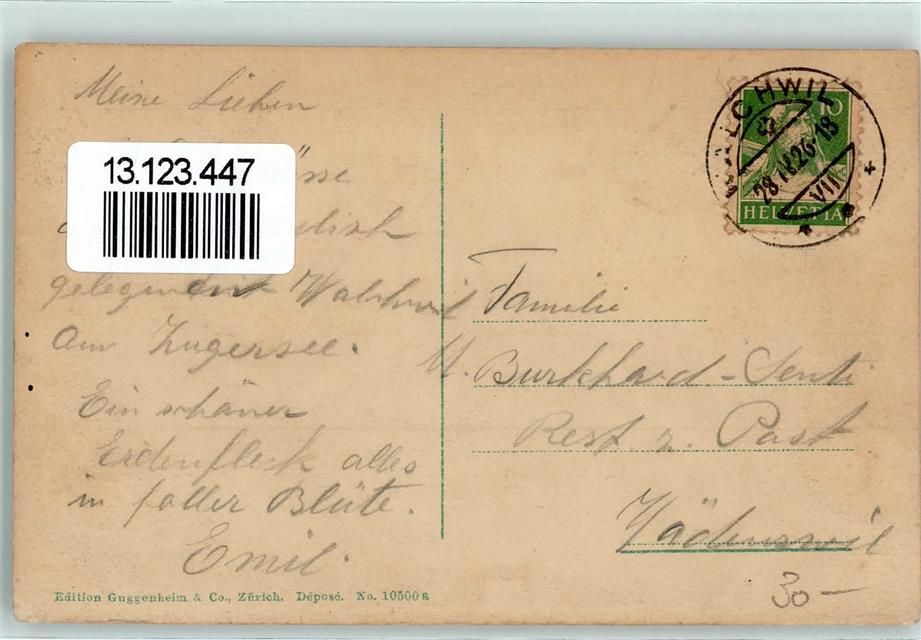 Meine Lieben
13.123.447
gelegenen Walchwil
am Zugersee.
Ein schöner
Erdenfleck alles
in foller Blüte.
Emil.
Edition Guggenheim & Co., Zürich. Déposé. No. 10500 8
WALCHWIL
10
28. IV. 26-18
VII
HELVETIA
Familie
Burkhard-Senti
Rest. z. Post
Wädenswil
30 —